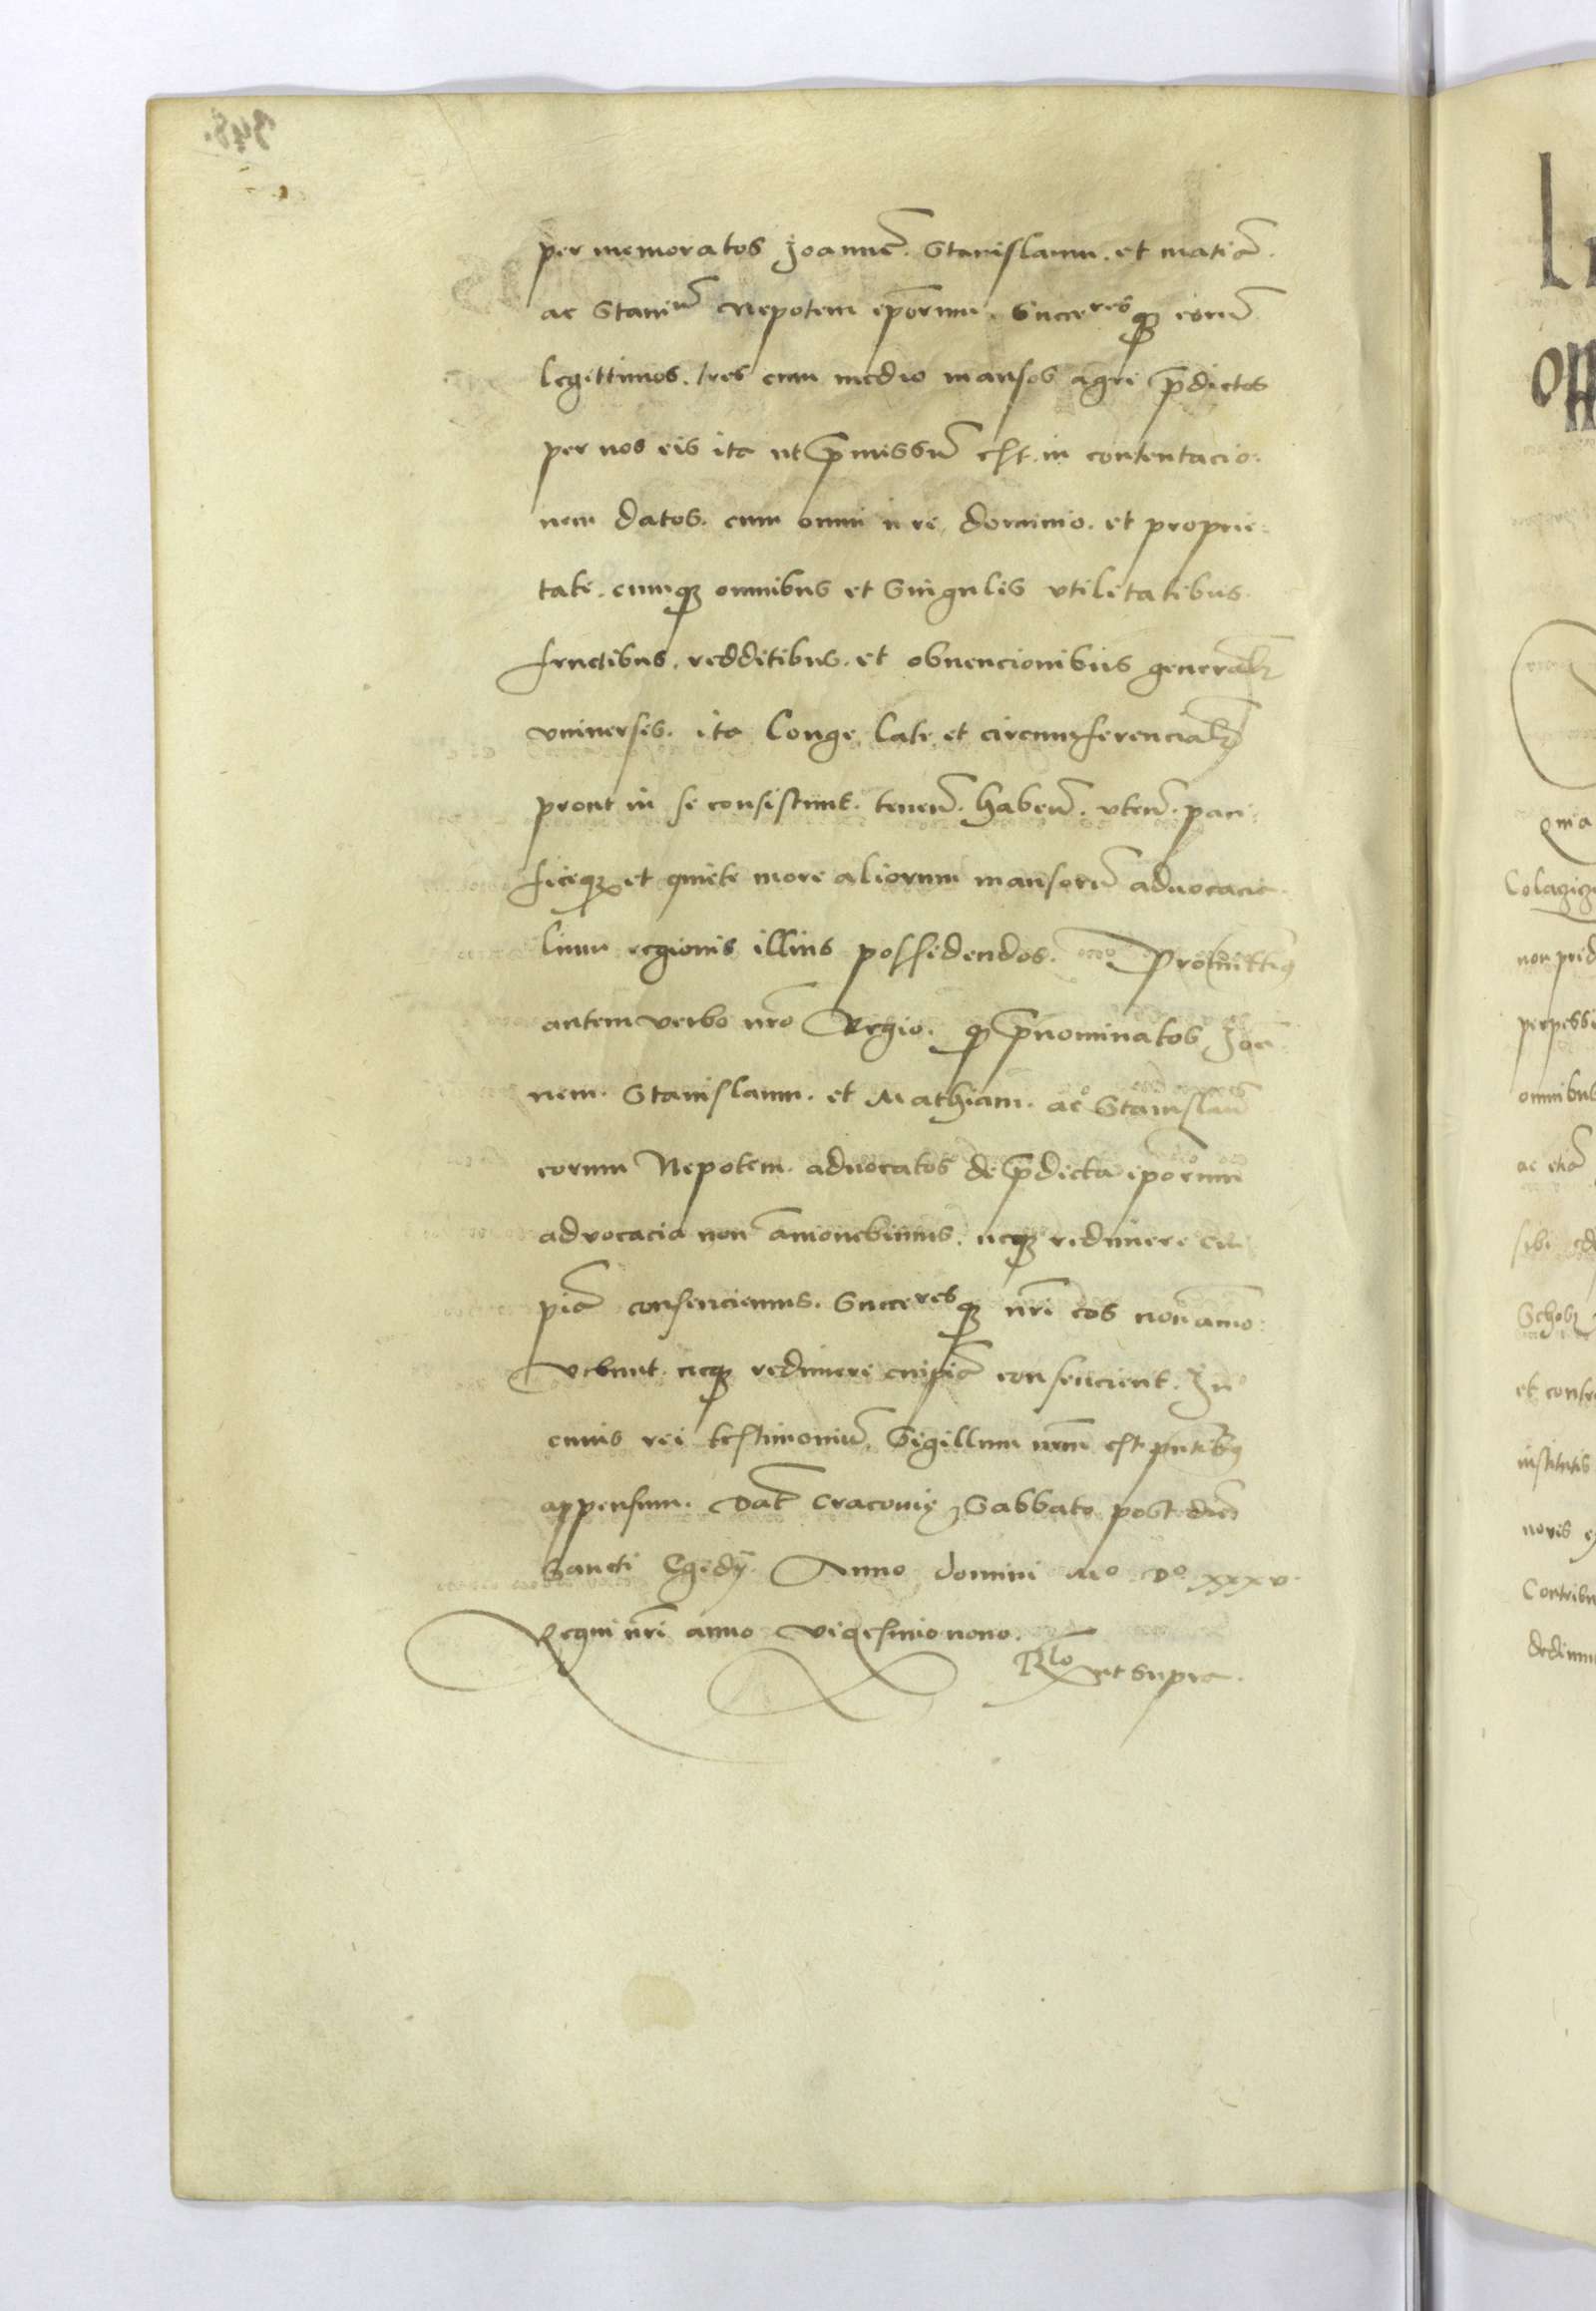 per memoratos Joannē. Stanislaum. et matiā.
ac Staniū Nepotem ip̄orum. Succeresq3 eorū
legittimos. tres cum medio mansos agri p̄dictos
per nos eis ita ut p̄missū est. in contentacio:
nem datos. cum omni iure dominio. et proprie:
tate. cumq3 omnibus et Singulis vtilitatibus.
fructibus. redditibus. et obuencionibus generalr
vniuersis. ita Longe Late et circumferencialr
prout in se consistunt. tenenū. habenū. vtenū. paci:
ficeq3 et quiete more aliorum mansorū aduocacia:
lium regionis illius possidendos. Promittimus
autem verbo nro Regio. q p̄nominatos Joā:
nem. Stanislaum. et Mathiam. ac Stanislaū
eorum Nepotem. aduocatos de p̄dicta ip̄orum
advocacia non amouebimus. neq3 redimere cui
piā consenciemus. Succeresq3 nri eos non amo:
vebunt. neq3 redimere cuipiā consencient. In
cuius rei testimoniū. Sigillum nrm est pntibus
appensum. Dat Cracouię Sabbato post diē
Sancti Egidÿ. Anno domini Mo Do xxxv.
Regni nri anno vigesimonono.
Rlo ut supra.
Colaziz
non
omnibus
ac etiā
sibi
et contr
institutis
novis
Contribu
dedimu